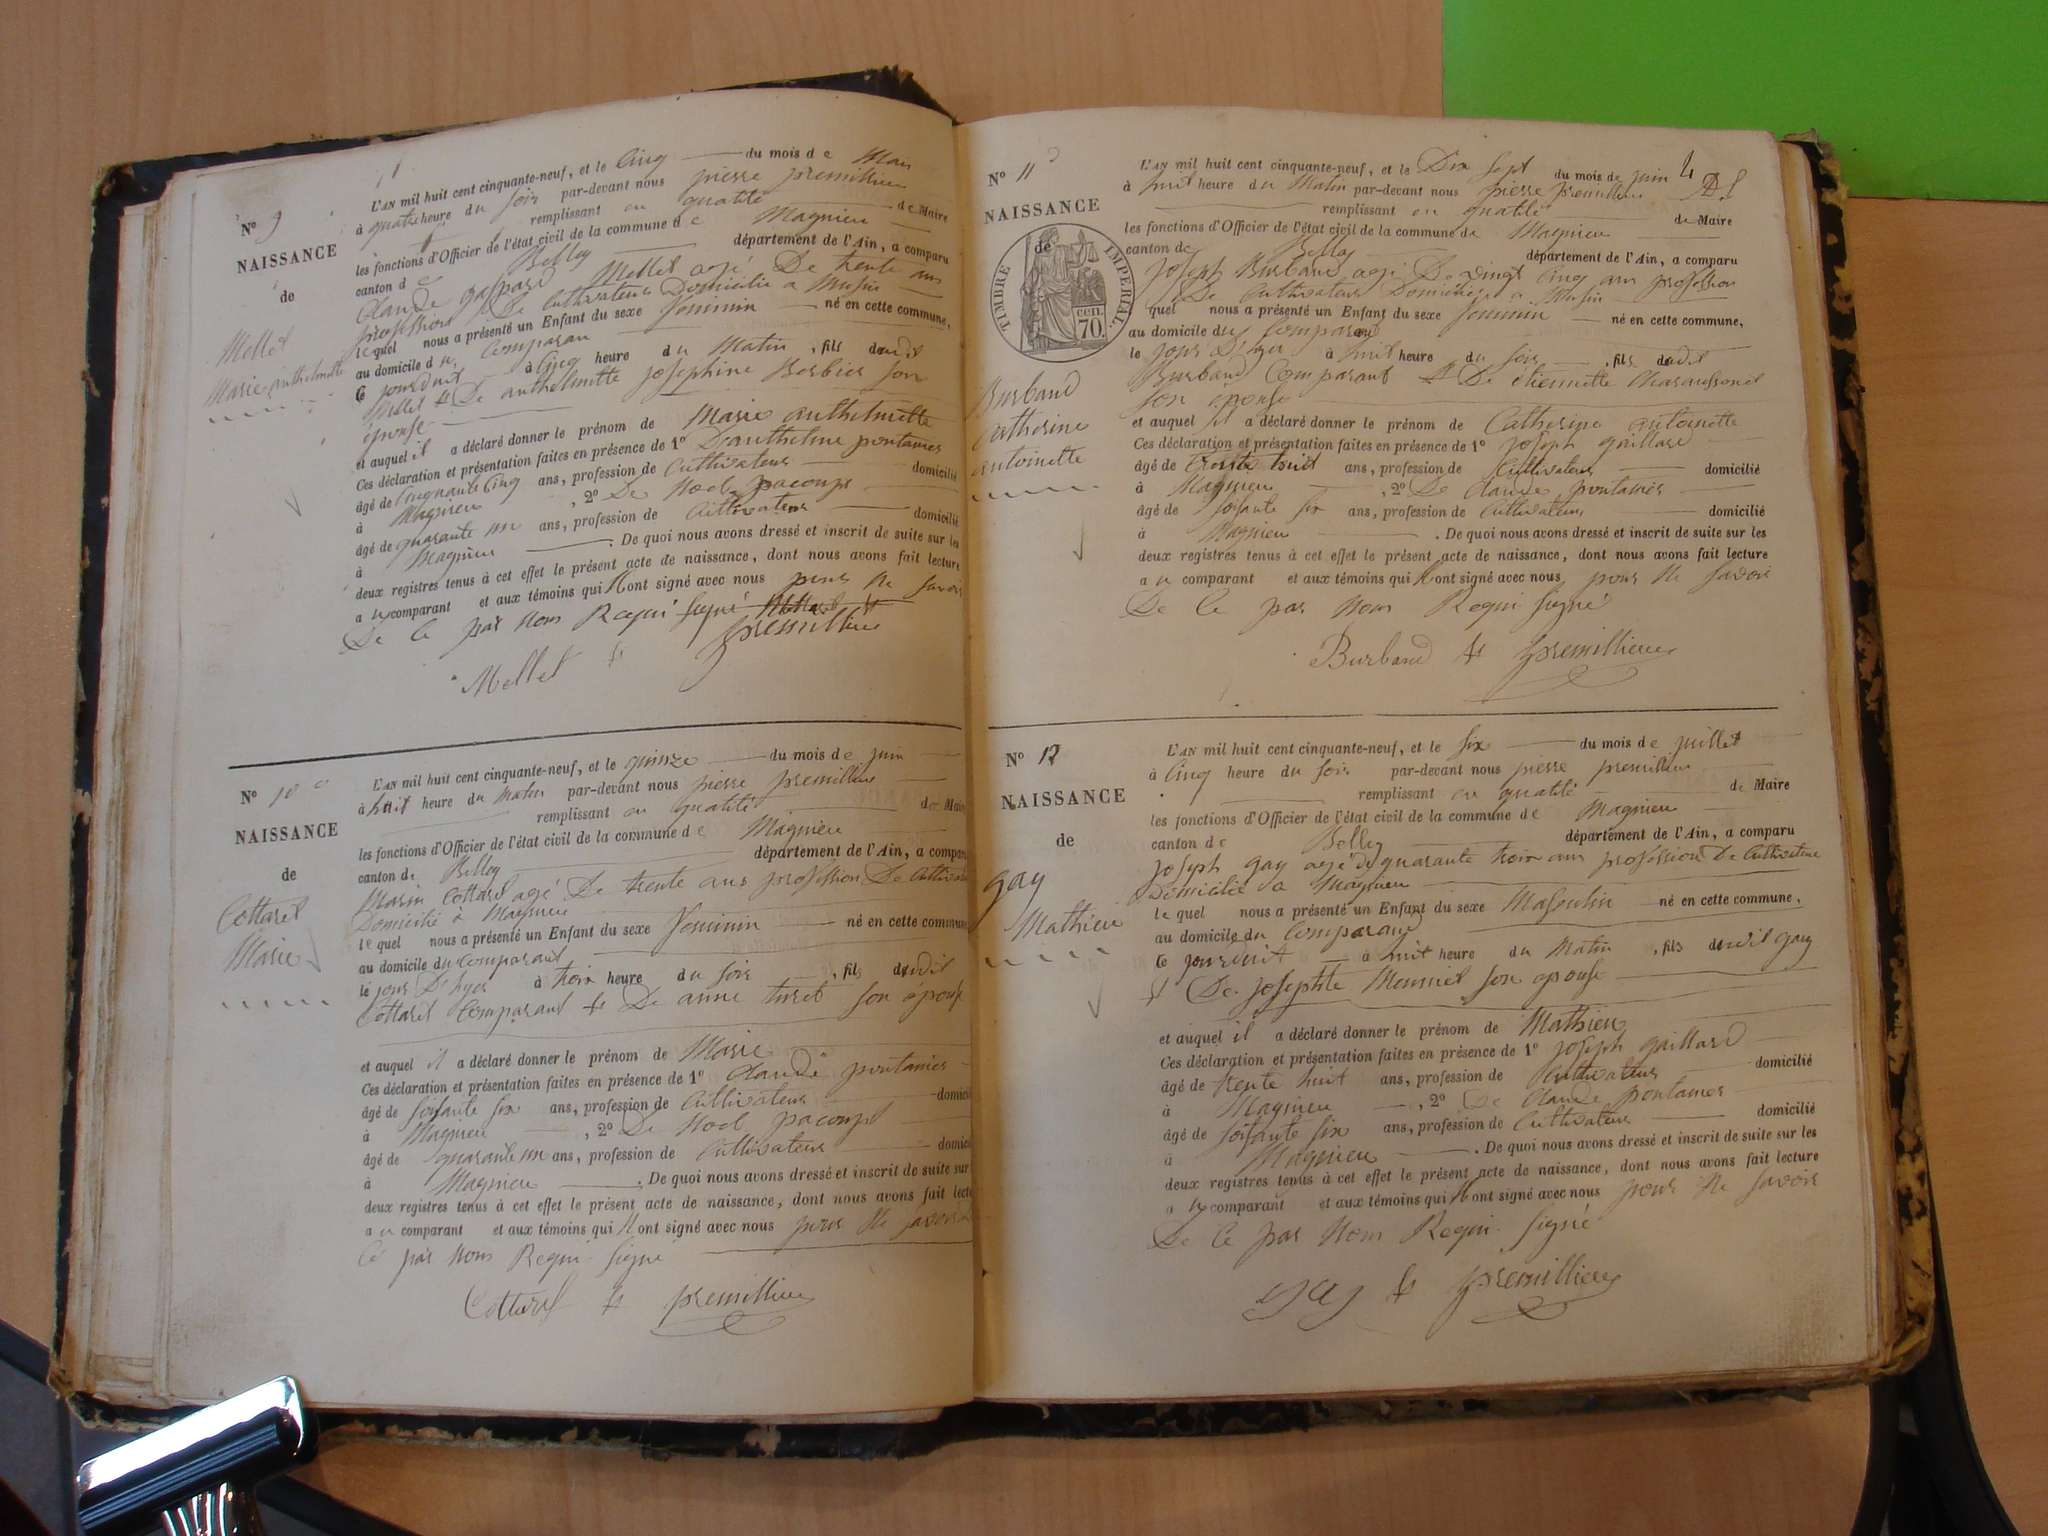 N° 9
NAISSANCE
de
Mellet
Marie anthelmette
L'AN mil huit cent cinquante-neuf, et le Cinq du mois de Mai
à quatre heure du soir par-devant nous pierre premillieu
remplissant en qualité de Maire
les fonctions d'Officier de l'état civil de la commune de Magnieu
canton de Belley département de l'Ain, a comparu
Claude gaspard Mellet agé De trente ans
profession De Cultivateur Domicilié a Musin
lequel nous a présenté un Enfant du sexe féminin né en cette commune,
au domicile du Comparan
le jourduit à Cinq heure du Matin, fils dudit
Mellet & De anthelmette josephine Berbier son
épouse
et auquel il a déclaré donner le prénom de Marie anthelmette
Ces déclaration et présentation faites en présence de 1° D'anthelme pontanier
âgé de Cinquante Cinq ans, profession de Cultivateur domicilié
à Magnieu, 2° De Noel pacoup
âgé de quarante un ans, profession de Cultivateur domicilié
à Magnieu. De quoi nous avons dressé et inscrit de suite sur les
deux registres tenus à cet effet le présent acte de naissance, dont nous avons fait lecture
a u comparant et aux témoins qui n'ont signé avec nous pour Ne savoir
De Ce par Nous Requi signé
Mellet & premillieu
N° 10
NAISSANCE
de
Cottaret
Marie
L'AN mil huit cent cinquante-neuf, et le quinze du mois de juin
à huit heure du Matin par-devant nous pierre premillieu
remplissant en qualité de Maire
les fonctions d'Officier de l'état civil de la commune de Magnieu
canton de Belley département de l'Ain, a comparu
Marin Cottaret agé De trente ans profession De Cultivateur
Domicilié à Magnieu
le quel nous a présenté un Enfant du sexe féminin né en cette commune
au domicile du comparant
le jour D'hyer à trois heure du soir, fils dudit
Cottaret Comparant & De anne turel son épouse
et auquel il a déclaré donner le prénom de Marie
Ces déclaration et présentation faites en présence de 1° Claude pontanier
âgé de soisante six ans, profession de Cultivateur domici
à Magnieu, 2° De Noel pacoup
âgé de quarante un ans, profession de Cultivateur domici
à Magnieu. De quoi nous avons dressé et inscrit de suite sur
deux registres tenus à cet effet le présent acte de naissance, dont nous avons fait lectu
a u comparant et aux témoins qui n'ont signé avec nous pour Ne savoir
Ce par Nous Requi signé
Cottaret & premillieu
N° 11
NAISSANCE
de
TIMBRE IMPERIAL.
CCIL
70
Burband
Catherine
antoinette
4
L'AN mil huit cent cinquante-neuf, et le Dix Sept du mois de juin
à huit heure du Matin par-devant nous pierre premillieu
remplissant en qualité de Maire
les fonctions d'Officier de l'état civil de la commune de Magnieu
canton de Belley département de l'Ain, a comparu
joseph Burband agé De vingt Cinq ans profession
De Cultivateur Domicilié a Musin
quel nous a présenté un Enfant du sexe féminin né en cette commune,
au domicile du Comparant
le jour D'hyer à huit heure du soir, fils dudit
Burband Comparant & De étiennette
son épouse
et auquel il a déclaré donner le prénom de Catherine antoinette
Ces déclaration et présentation faites en présence de 1° joseph gaillard
âgé de trente huit ans, profession de Cultivateur domicilié
à Magnieu, 2° De Claude pontanier
âgé de soisante six ans, profession de Cultivateur domicilié
à Magnieu. De quoi nous avons dressé et inscrit de suite sur les
deux registres tenus à cet effet le présent acte de naissance, dont nous avons fait lecture
a u comparant et aux témoins qui n'ont signé avec nous pour Ne savoir
De Ce par Nous Requi signé
Burband & premillieu
N° 12
NAISSANCE
de
gay
Mathieu
L'AN mil huit cent cinquante-neuf, et le six du mois de juillet
à Cinq heure du soir par-devant nous pierre premillieu
remplissant en qualité de Maire
les fonctions d'Officier de l'état civil de la commune de Magnieu
canton de Belley département de l'Ain, a comparu
joseph gay agé de quarante trois ans profession De Cultivateur
Domicilié a Magnieu
le quel nous a présenté un Enfant du sexe Masculin né en cette commune,
au domicile du Comparand
le jourduit à huit heure du Matin, fils dudit gay
& De josephte Meunier son epouse
et auquel il a déclaré donner le prénom de Mathieu
Ces déclaration et présentation faites en présence de 1° joseph gaillard
âgé de trente huit ans, profession de Cultivateur domicilié
à Magnieu, 2° De Claude pontanier
âgé de soisante six ans, profession de Cultivateur domicilié
à Magnieu. De quoi nous avons dressé et inscrit de suite sur les
deux registres tenus à cet effet le présent acte de naissance, dont nous avons fait lecture
a u comparant et aux témoins qui n'ont signé avec nous pour Ne savoir
De Ce par Nous Requi signé
gay & premillieu